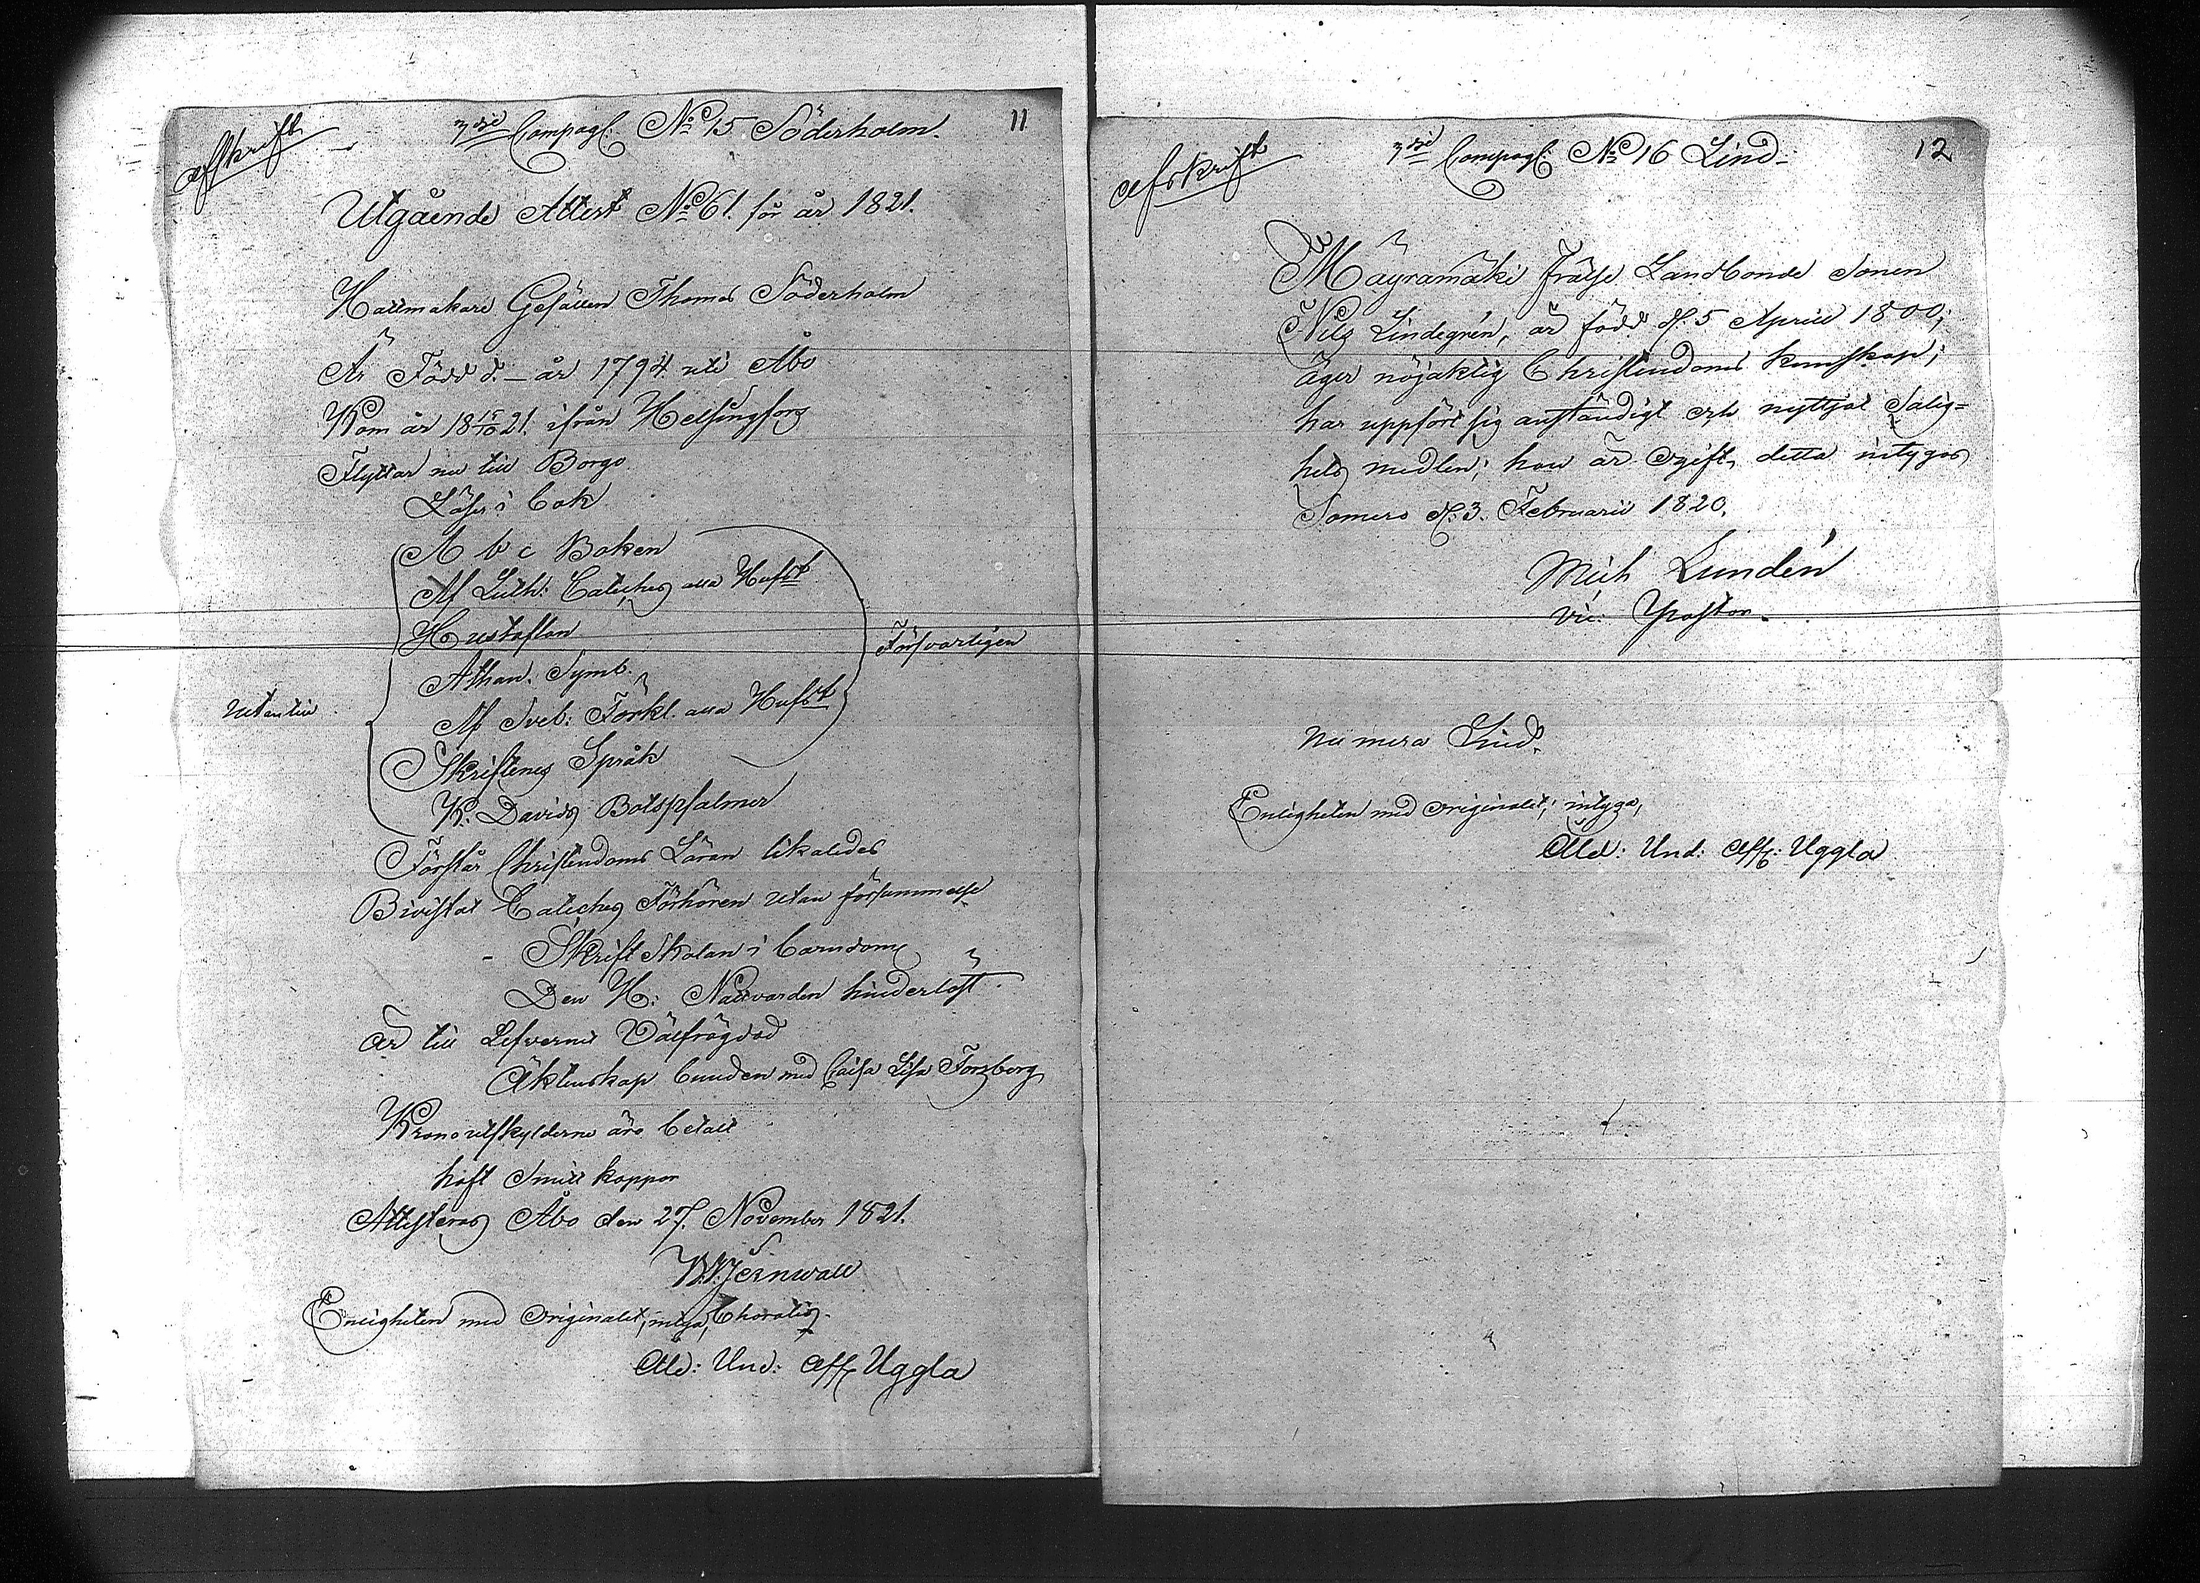 Afskrift
3dje Compagl: No 15 Söderholm.
11
Utgående Attest No 61. för år 1821.
Hattmakare Gesällen Thomas Söderholm
Är Född d. — år 1794 uti Åbo
Kom år 18 15/10 21. ifrån Helsingfors
Flyttar nu till Borgo
Läser i bok
A b c Boken
Af Luth: Cateches alla Hufst
Hustaflan
Athan. Symb.
Af Sveb: Förkl. alla Hufst
Skriftenes Språk
K. Davids Botspsalmer
Utantill
Försvarligen
Förstår Christendoms Läran likaledes
Bivistat Cateches Förhören utan försummelse
- Skrift Skolan i barndomen
Den H: Nattvarden hinderlöst.
är till Lefvernet Välfrägdad
Äktenskap bunden med Caisa Lisa Forsberg
Kronoutskylderne äro betalt
haft Smitt koppor
Attesteras Åbo den 27. November 1821.
Jernwall
Enligheten med Originalet, intyga,
Ald: Und: Off: Uggla
Afskrift
3dje Compagl: No 16 Lind.
12
Mäyrämäki Frälse Landbonde Sonen
Nils Lindegrén, är född d. 5 Aprill 1800;
äger nöjaktig Christendoms kunskap;
har uppfört sig anständigt och nyttjat Salig=
hets medlen; han är ogift, detta intygas
Somero d. 3. Februarii 1820.
Mich Lundén
Vic: Pastor.
Nu mera Lind.
Enligheten med Originalet, intyga,
Ald: Und: Off: Uggla